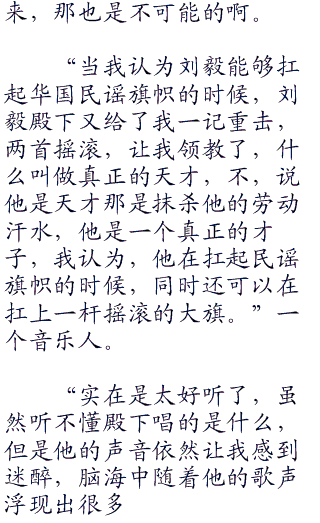 来，那也是不可能的啊。
“当我认为刘毅能够扛
起华国民谣旗帜的时候，刘
毅殿下又给了我一记重击，
两首摇滚，让我领教了，什
么叫做真正的天才，不，说
他是天才那是抹杀他的劳动
汗水，他是一个真正的才
子，我认为，他在扛起民谣
旗帜的时候，同时还可以在
扛上一杆摇滚的大旗。”一
个音乐人。
“实在是太好听了，虽
然听不懂殿下唱的是什么，
但是他的声音依然让我感到
迷醉，脑海中随着他的歌声
浮现出很多